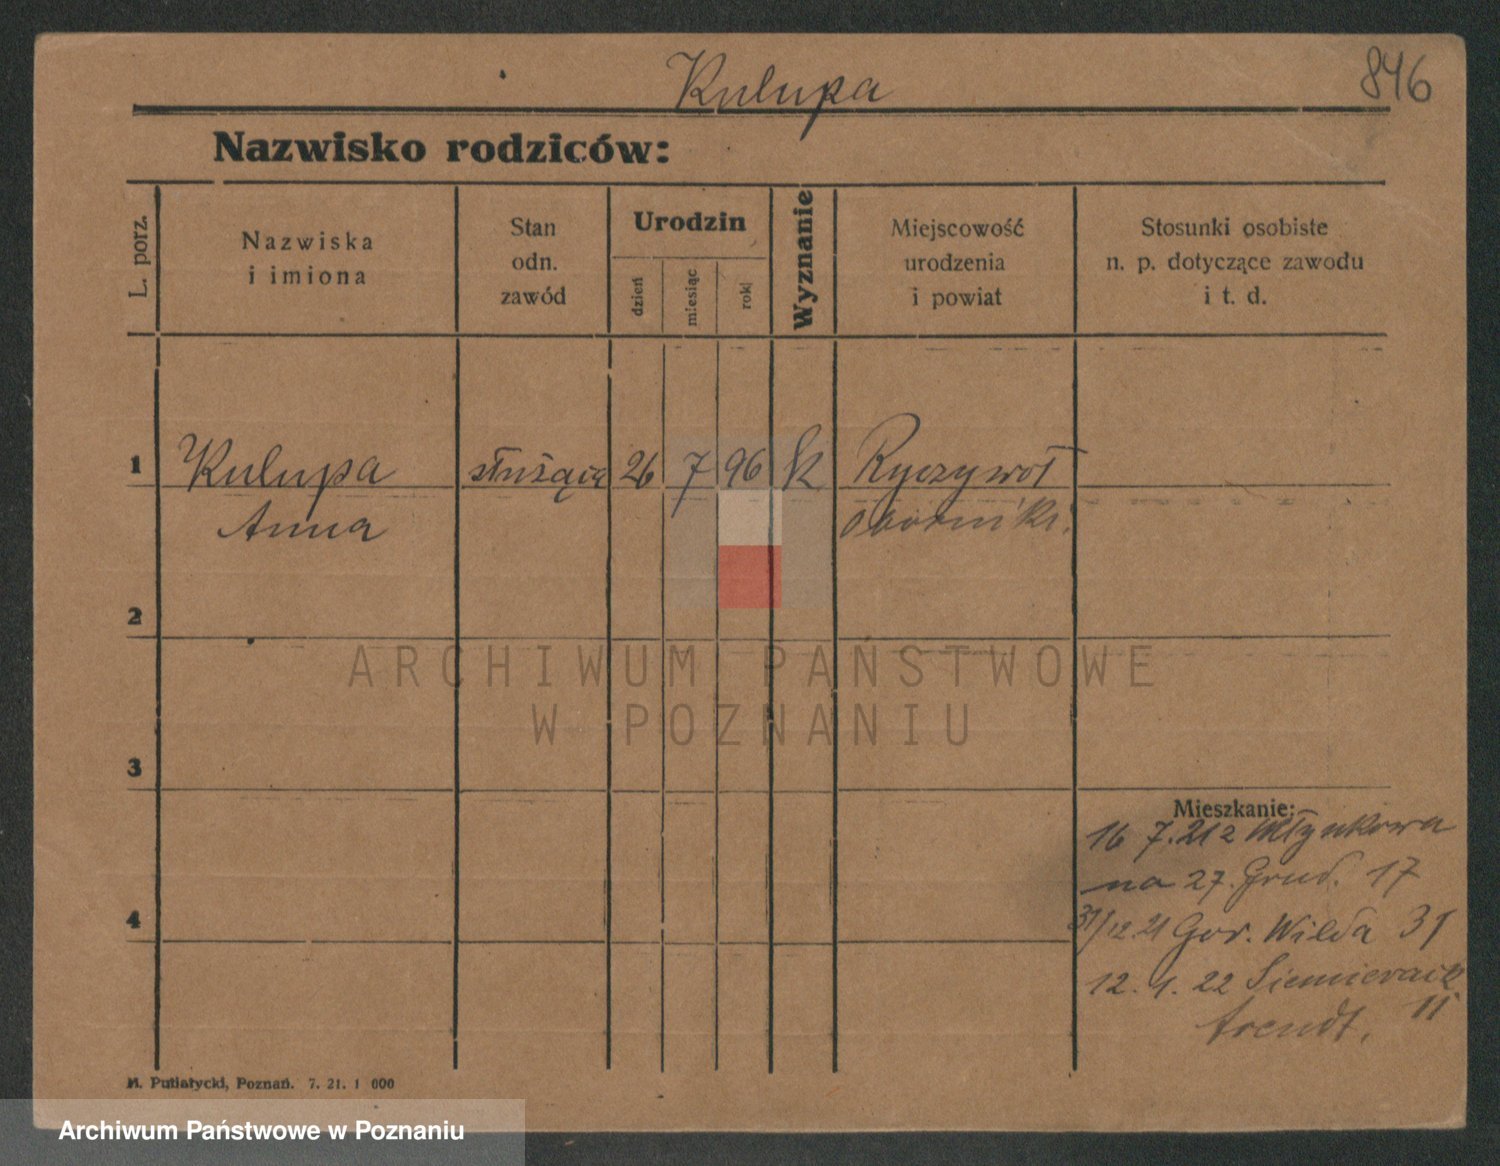 Kulupa
846
Nazwisko rodziców:
L. porz.
Nazwiska
i imiona
Stan
odn.
zawód
Urodzin
dzień
miesiąc
rok
Wyznanie
Miejscowość
urodzenia
i powiat
Stosunki osobiste
n. p. dotyczące zawodu
i t. d.
1
Kulupa służąca 26 7 96 k Ryczywoł
Anna Oborniki
2
ARCHIWUM PAŃSTWOWE
W POZNANIU
3
Mieszkanie:
16 7.21 z Młynkowa
na 27. Grud. 17
4
31/12.21 Gor. Wilda 31
12. 1. 22
11
M. Putiatycki, Poznań. 7. 21. 1 000
Archiwum Państwowe w Poznaniu